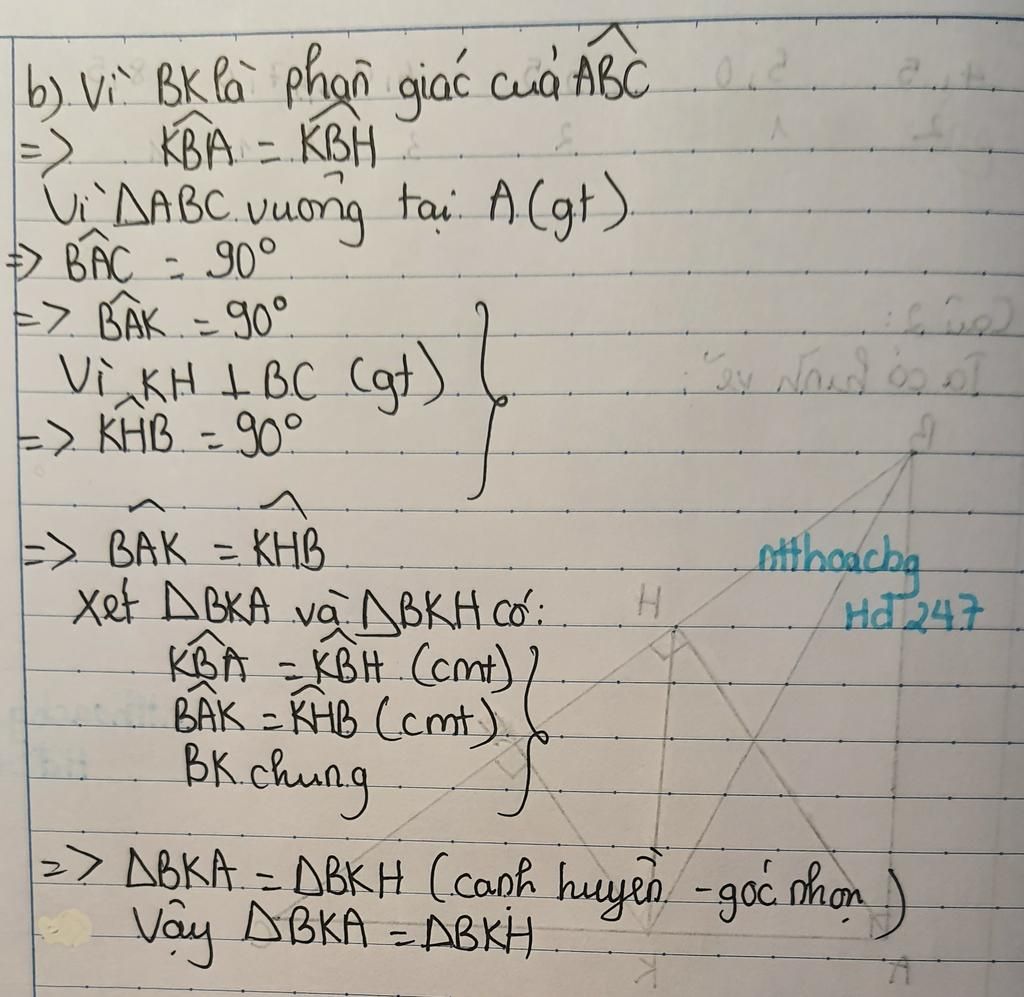 b) Vì BK là phân giác của ABC
=> KBA = KBH
Vì ΔABC vuông tại A (gt)
=> BAC = 90°
=> BAK = 90°
Vì KH ⊥ BC (gt)
=> KHB = 90°
=> BAK = KHB
Xét ΔBKA và ΔBKH có:
KBA = KBH (cmt)
BAK = KHB (cmt)
BK chung
=> ΔBKA = ΔBKH (cạnh huyền - góc nhọn)
Vậy ΔBKA = ΔBKH
ntthoacbg
Hđ 247
Câu 2:
Ta có hình vẽ:
B
H
K
A